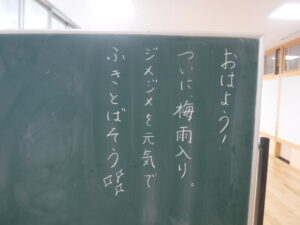 おはよう!
ついに梅雨入り。
ジメジメを元気で
ふきとばそう